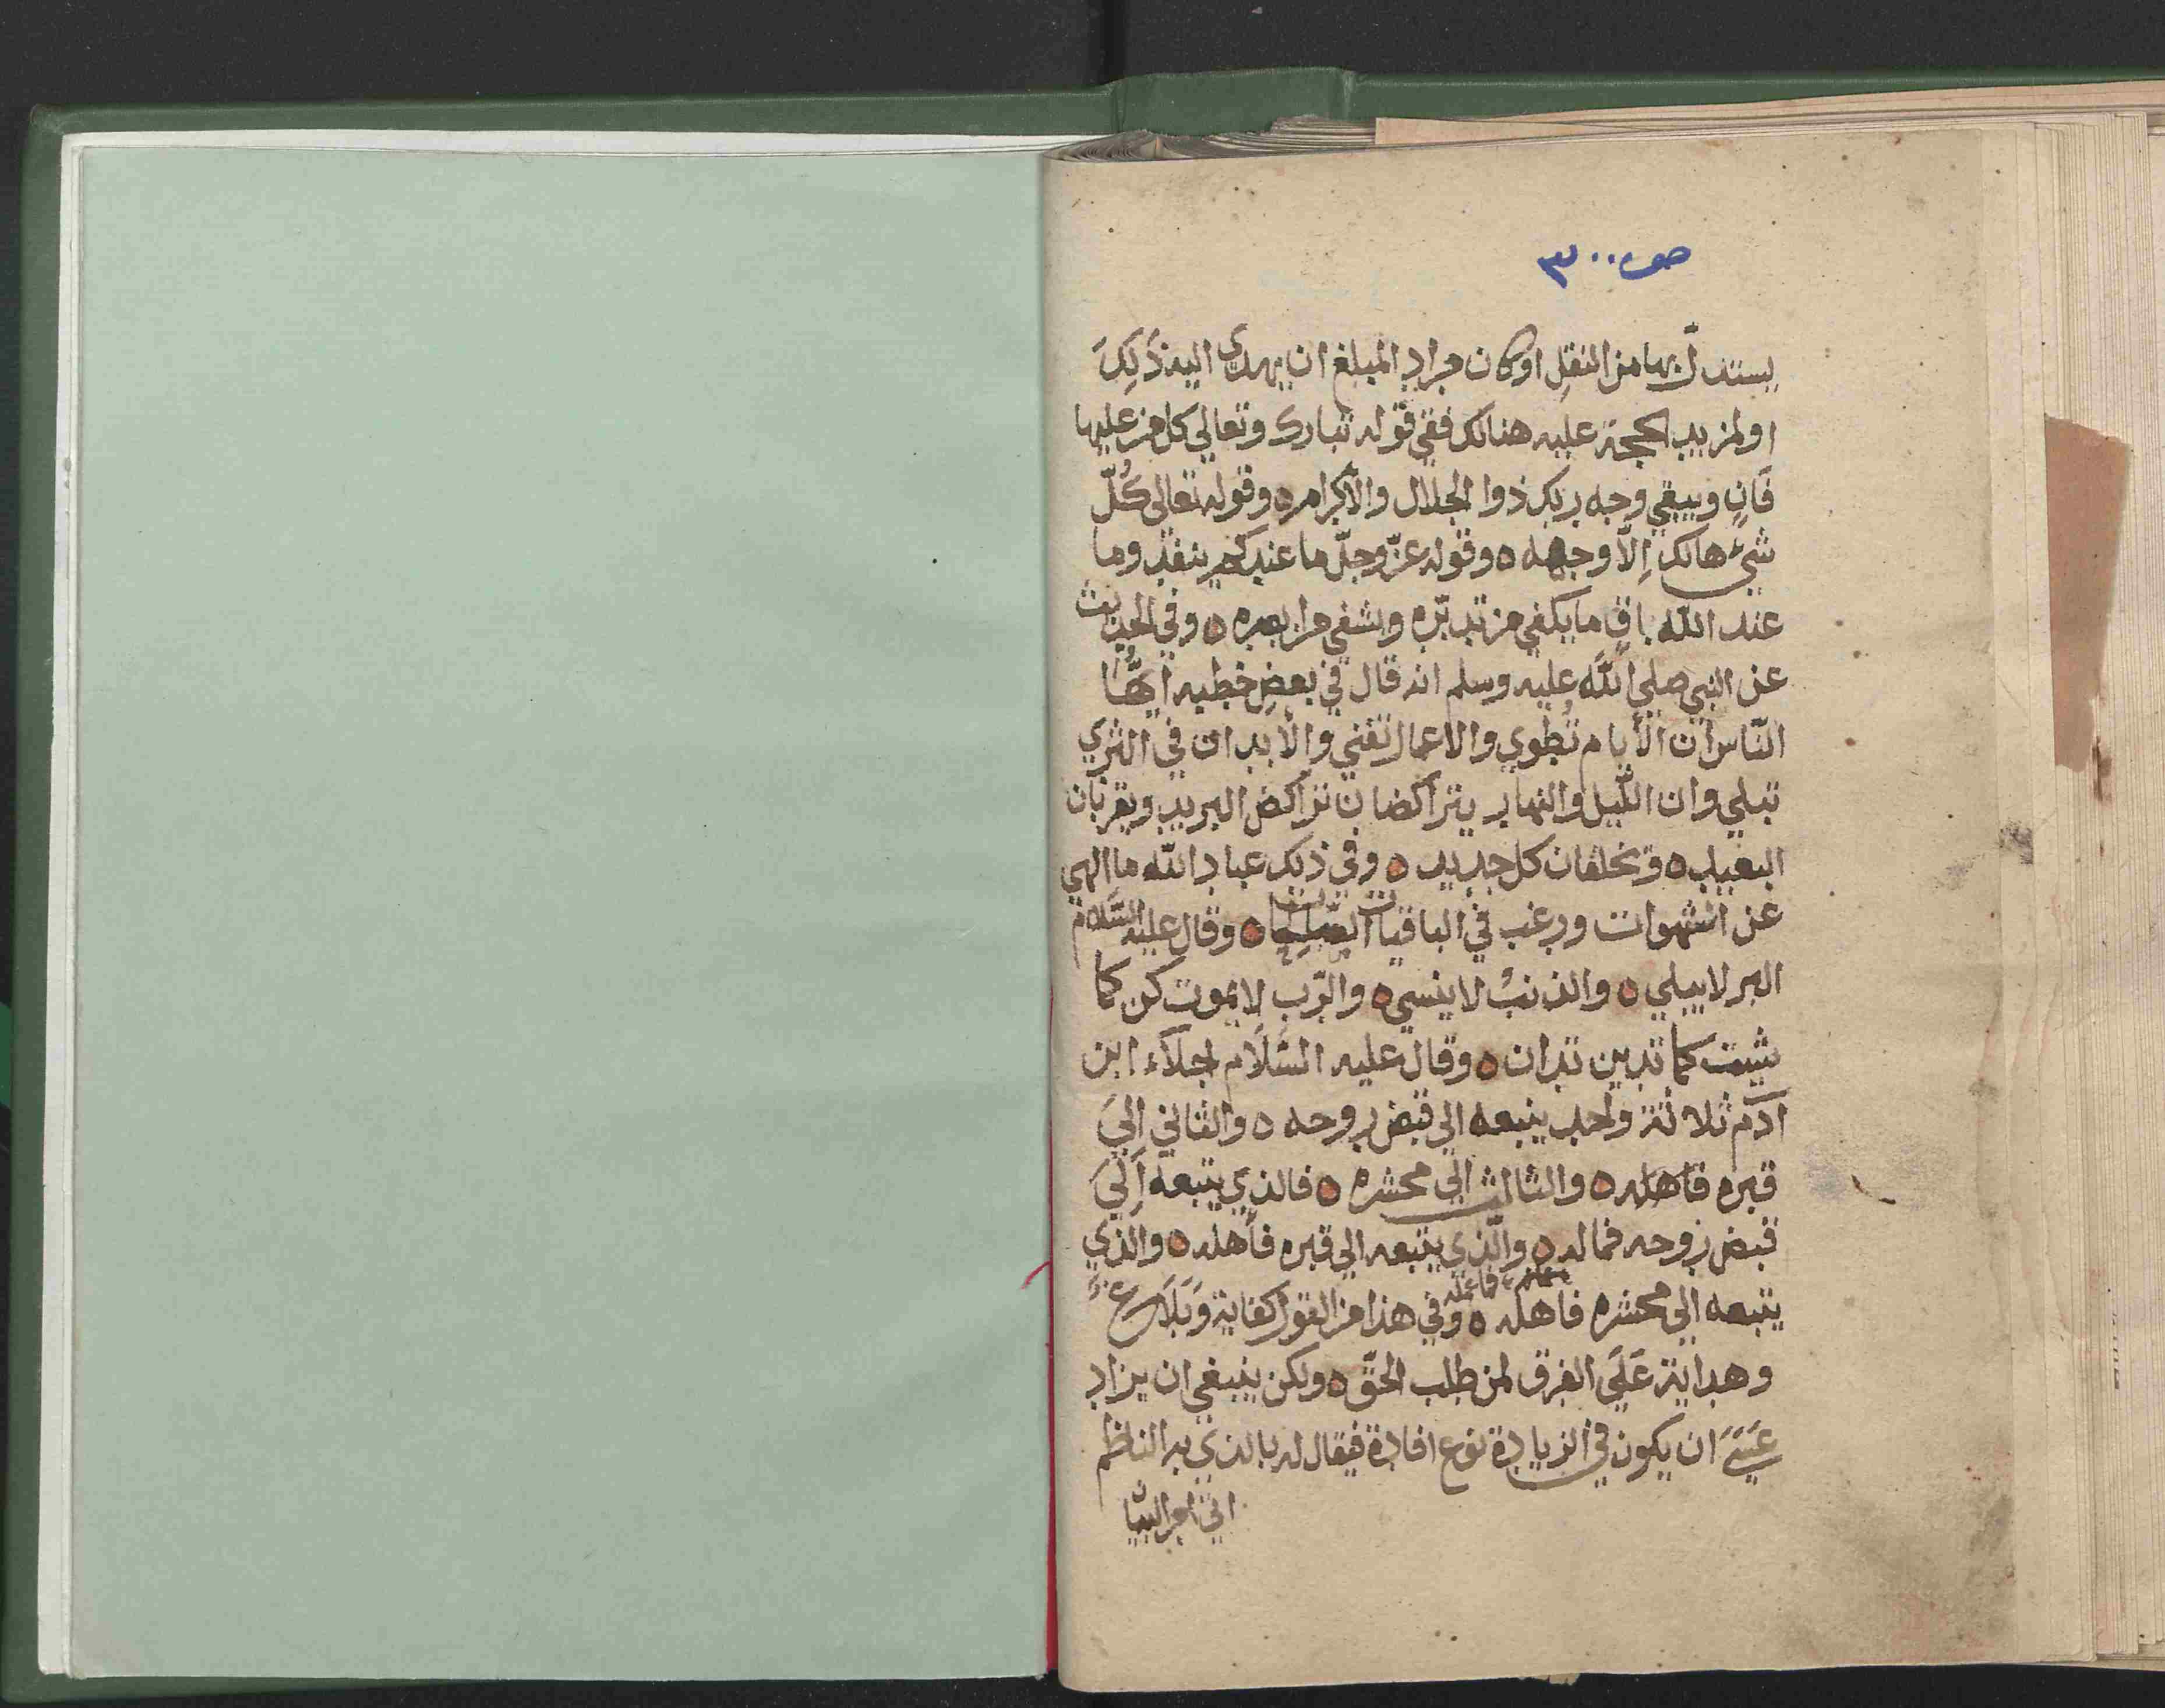 ص ٣٠٠
يستدلّ بها من النقلِ او كان مراد المبلغ ان يهدى اليه ذَلِكَ
او لمزيد الحجة عليه هنالك ففي قوله تبارك وتعالي كل من عليها
فَانٍ ويبقي وجه ربك ذوا الجلال والاكرام ه وقوله تعالى كُلّ
شيء هالك اِلاّ وجهه ه وقوله عزّ وجلّ ما عندكم ينفد وما
عند الله باقٍ ما يكفي من تدبّره ويشفي من ابصره ه وفي الحديث
عن النبي صلي اللَّه عليه وسلم انه قال في بعضِ خطبه ايُّها
النّاس ان الأيام تُطوي والاعمار تفني والأبدان في الثري
تبلي وان اللّيل والنهار يتراكضان تراكض البريد ويقربان
البعيد ه ويخلقان كل جديد ه وفي ذلك عباد اللّه ما الهي
عن الشهوات ورغب في الباقيات الصّلحات ه وقال عليه السَّلام
البر لا يبلي ه والذنبْ لا ينسي ه والرّب لا يموت كن كما
شيت كما تدين تدان ه وقال عليه السَّلَام اخلآء ابن
آدم ثلاثة واحد يتبعه الي قبض روحه ه والثاني اليَ
قبره فاهله ه والثالث الي محشره ه فالذي يتبعه اِليَ
قبض روحه فماله ه والّذي يتبعه الي قبره فأهله ه والذي
يتبعه الي محشره فاهله فاعمله ه وفي هذا من القول كفاية وَبَلَاغ
وهداية عَلَي الفرق لمن طلب الحَقّ ه ولكن ينبغي ان يزاد
عَسَيَ ان يكون في الزيادة نوع افادة فيقال له بالذي به الناظم